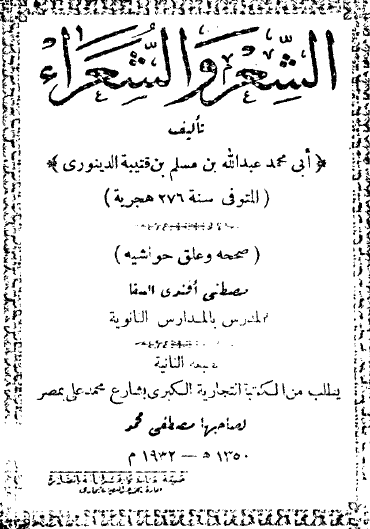 الشِّعْرُ وَالشُّعَرَاء
تأليف
﴿ أبى محمد عبدالله بن مسلم بن قتيبة الدينورى ﴾
( المتوفى سنة ٢٧٦ هجرية )
( صححه وعلق حواشيه )
مصطفى أفندى السقا
المدرس بالمدارس الثانوية
الطبعة الثانية
يطلب من المكتبة التجارية الكبرى بشارع محمد على بمصر
لصاحبها مصطفى محمد
١٣٥٠ ه — ١٩٣٢ م